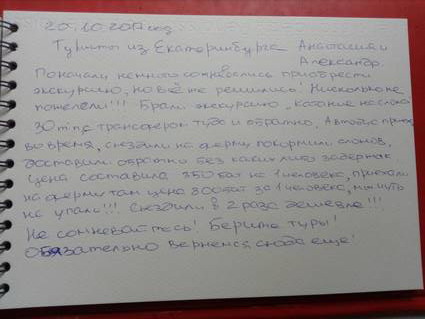 20.10.2017 год
Туристы из Екатеринбурга Анастасия и
Александр.
Поначалу немного сомневались приобрести
экскурсию, но всё же решились! Нисколько не
пожалели!!! Брали экскурсию "катание на слонах
30 min с трансфером туда и обратно. Автобус приехал
вовремя, съездили на ферму покормили слонов,
доставили обратно без каких либо задержек
Цена составила 350 бат на 1 человека, приехали
на ферму там цена 800 бат за 1 человека, мы чуть
не упали!!! Съездили в 2 раза дешевле!!!
Не сомневайтесь! Берите туры!
Обязательно вернемся сюда еще!